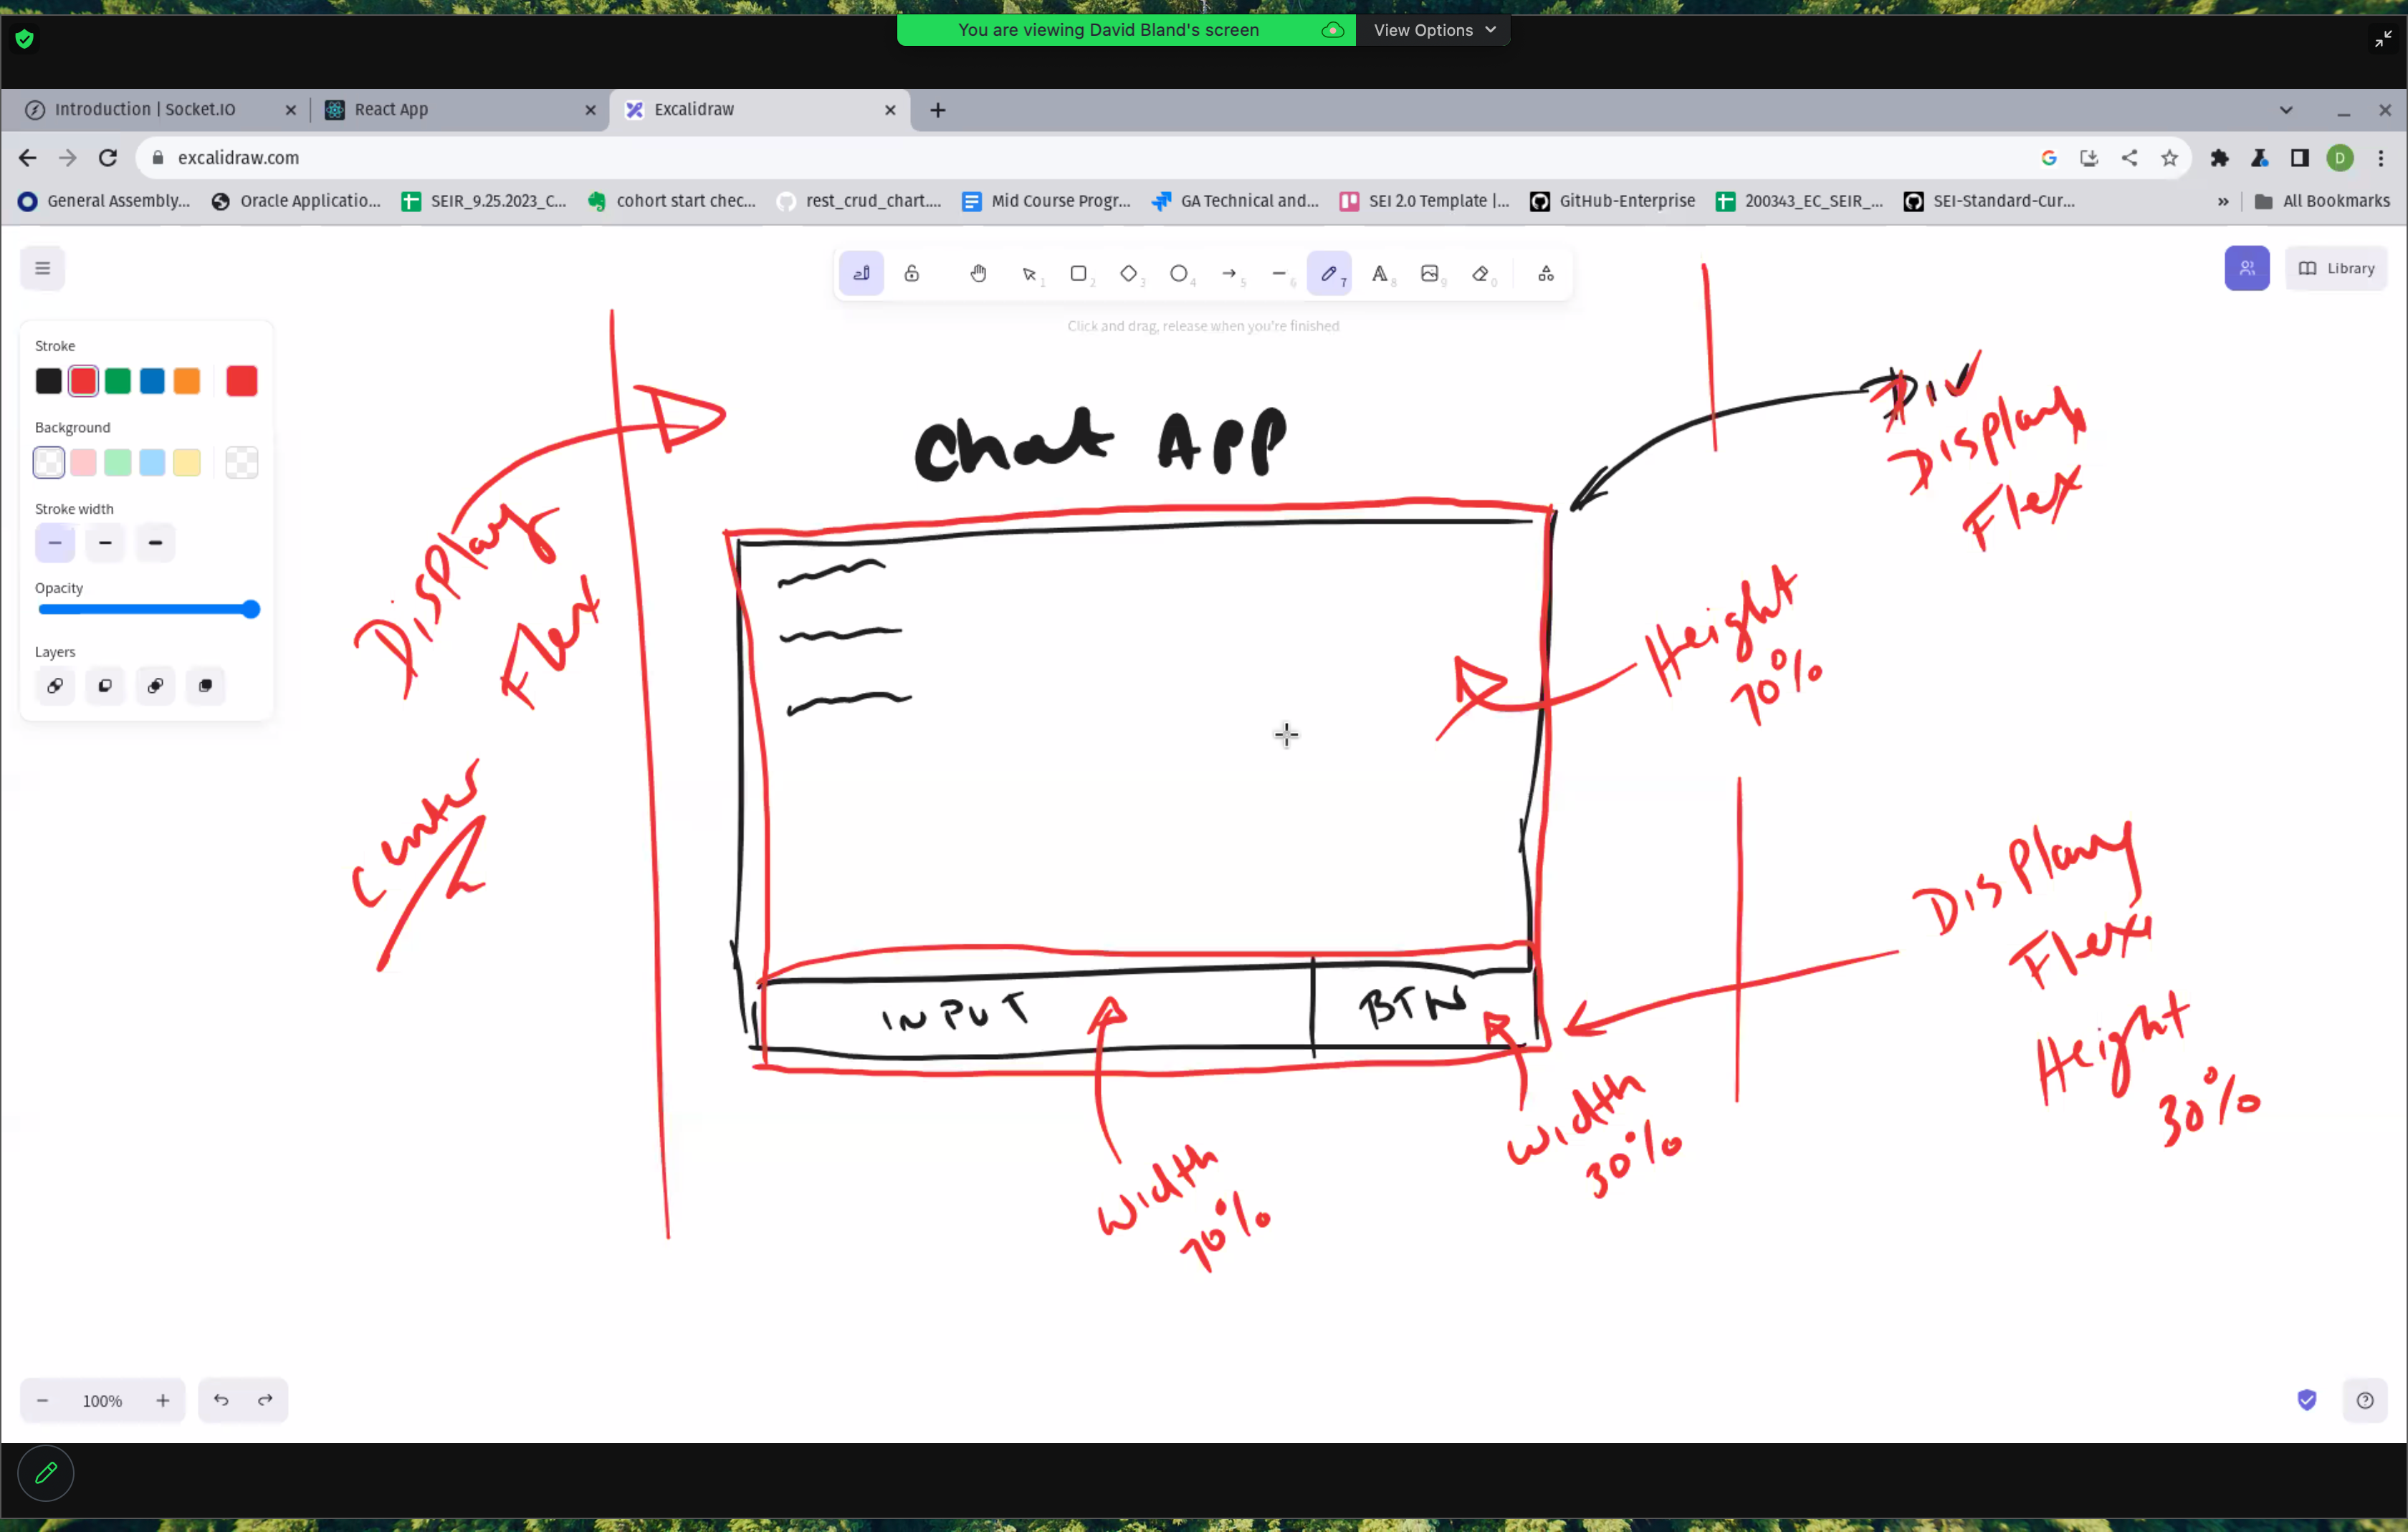 You are viewing David Bland's screen
View Options
Introduction | Socket.IO
React App
Excalidraw
excalidraw.com
D
General Assembly...
Oracle Applicatio...
SEIR_9.25.2023_C...
cohort start chec...
rest_crud_chart....
Mid Course Progr...
GA Technical and...
SEI 2.0 Template |...
GitHub-Enterprise
200343_EC_SEIR_...
SEI-Standard-Cur...
»
All Bookmarks
1
2
3
4
5
6
7
8
9
0
Library
Click and drag, release when you're finished
Stroke
Background
Stroke width
Opacity
Layers
Chat APP
Div
Display
Flex
Display
Flex
Center
Height
70%
INPUT
BTN
Display
Flex
Height
30%
Width
70%
Width
30%
100%